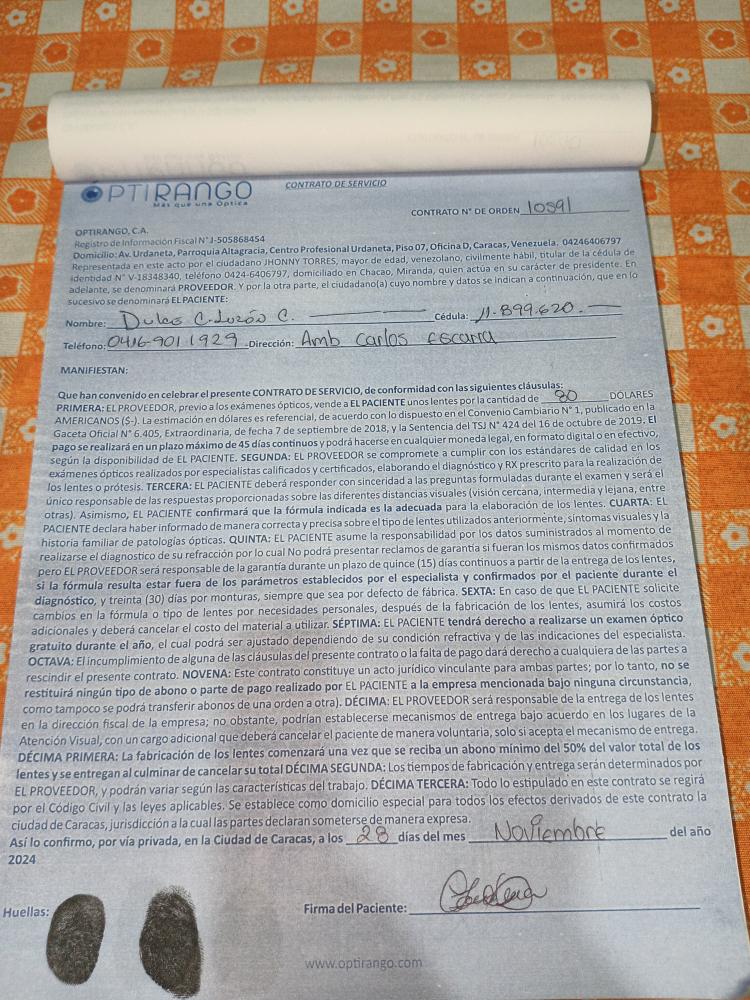 OPTIRANGO
Más que una Óptica
CONTRATO DE SERVICIO
CONTRATO N° DE ORDEN 10591
OPTIRANGO, C.A.
Registro de Información Fiscal N° J-505868454
Domicilio: Av. Urdaneta, Parroquia Altagracia, Centro Profesional Urdaneta, Piso 07, Oficina D, Caracas, Venezuela. 04246406797
Representada en este acto por el ciudadano JHONNY TORRES, mayor de edad, venezolano, civilmente hábil, titular de la cédula de
identidad N° V-18348340, teléfono 0424-6406797, domiciliado en Chacao, Miranda, quien actúa en su carácter de presidente. En
adelante, se denominará PROVEEDOR. Y por la otra parte, el ciudadano(a) cuyo nombre y datos se indican a continuación, que en lo
sucesivo se denominará EL PACIENTE:
Nombre: Dulce C. C. Cédula: 11.899.620.
Teléfono: 0416-901 1929 -Dirección: Amb Carlos Escarra
MANIFIESTAN:
Que han convenido en celebrar el presente CONTRATO DE SERVICIO, de conformidad con las siguientes cláusulas:
PRIMERA: EL PROVEEDOR, previo a los exámenes ópticos, vende a EL PACIENTE unos lentes por la cantidad de 80 DÓLARES
AMERICANOS ($-). La estimación en dólares es referencial, de acuerdo con lo dispuesto en el Convenio Cambiario N° 1, publicado en la
Gaceta Oficial N° 6.405, Extraordinaria, de fecha 7 de septiembre de 2018, y la Sentencia del TSJ N° 424 del 16 de octubre de 2019. El
pago se realizará en un plazo máximo de 45 días continuos y podrá hacerse en cualquier moneda legal, en formato digital o en efectivo,
según la disponibilidad de EL PACIENTE. SEGUNDA: EL PROVEEDOR se compromete a cumplir con los estándares de calidad en los
exámenes ópticos realizados por especialistas calificados y certificados, elaborando el diagnóstico y RX prescrito para la realización de
los lentes o prótesis. TERCERA: EL PACIENTE deberá responder con sinceridad a las preguntas formuladas durante el examen y será el
único responsable de las respuestas proporcionadas sobre las diferentes distancias visuales (visión cercana, intermedia y lejana, entre
otras). Asimismo, EL PACIENTE confirmará que la fórmula indicada es la adecuada para la elaboración de los lentes. CUARTA: EL
PACIENTE declara haber informado de manera correcta y precisa sobre el tipo de lentes utilizados anteriormente, síntomas visuales y la
historia familiar de patologías ópticas. QUINTA: EL PACIENTE asume la responsabilidad por los datos suministrados al momento de
realizarse el diagnostico de su refracción por lo cual No podrá presentar reclamos de garantía si fueran los mismos datos confirmados
pero EL PROVEEDOR será responsable de la garantía durante un plazo de quince (15) días continuos a partir de la entrega de los lentes,
si la fórmula resulta estar fuera de los parámetros establecidos por el especialista y confirmados por el paciente durante el
diagnóstico, y treinta (30) días por monturas, siempre que sea por defecto de fábrica. SEXTA: En caso de que EL PACIENTE solicite
cambios en la fórmula o tipo de lentes por necesidades personales, después de la fabricación de los lentes, asumirá los costos
adicionales y deberá cancelar el costo del material a utilizar. SÉPTIMA: EL PACIENTE tendrá derecho a realizarse un examen óptico
gratuito durante el año, el cual podrá ser ajustado dependiendo de su condición refractiva y de las indicaciones del especialista.
OCTAVA: El incumplimiento de alguna de las cláusulas del presente contrato o la falta de pago dará derecho a cualquiera de las partes a
rescindir el presente contrato. NOVENA: Este contrato constituye un acto jurídico vinculante para ambas partes; por lo tanto, no se
restituirá ningún tipo de abono o parte de pago realizado por EL PACIENTE a la empresa mencionada bajo ninguna circunstancia,
como tampoco se podrá transferir abonos de una orden a otra). DÉCIMA: EL PROVEEDOR será responsable de la entrega de los lentes
en la dirección fiscal de la empresa; no obstante, podrían establecerse mecanismos de entrega bajo acuerdo en los lugares de la
Atención Visual, con un cargo adicional que deberá cancelar el paciente de manera voluntaria, solo si acepta el mecanismo de entrega.
DÉCIMA PRIMERA: La fabricación de los lentes comenzará una vez que se reciba un abono mínimo del 50% del valor total de los
lentes y se entregan al culminar de cancelar su total DÉCIMA SEGUNDA: Los tiempos de fabricación y entrega serán determinados por
EL PROVEEDOR, y podrán variar según las características del trabajo. DÉCIMA TERCERA: Todo lo estipulado en este contrato se regirá
por el Código Civil y las leyes aplicables. Se establece como domicilio especial para todos los efectos derivados de este contrato la
ciudad de Caracas, jurisdicción a la cual las partes declaran someterse de manera expresa.
Así lo confirmo, por vía privada, en la Ciudad de Caracas, a los 28 días del mes Noviembre del año
2024
Huellas:
Firma del Paciente:
www.optirango.com